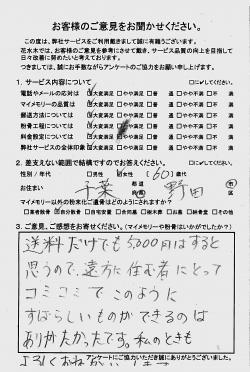 お客様のご意見をお聞かせください。
この度は、弊社サービスをご利用戴きまして誠に有難うございます。
花水木では、お客様のご意見を参考にさせて戴き、サービス品質の向上を目指して
日々改善に努めたいと考えております。
つきましては、誠にお手数ながらアンケートのご協力をお願い申し上げます。
1. サービス内容について □に✓してください。
電話やメールの応対は ☑大変満足 □やや満足 □普 通 □やや不満 □不 満
マイメモリーの品質は ☑大変満足 □やや満足 □普 通 □やや不満 □不 満
郵送方法については ☑大変満足 □やや満足 □普 通 □やや不満 □不 満
粉骨工程については ☑大変満足 □やや満足 □普 通 □やや不満 □不 満
料金設定については ☑大変満足 □やや満足 □普 通 □やや不満 □不 満
弊社サービスの全体印象 ☑大変満足 □やや満足 □普 通 □やや不満 □不 満
2. 差支えない範囲で結構ですのでお答えください。 □に✓してください。
性別 / 年代 □男性 ☑女性 (60)歳代
お住まい 千葉 都道府県 野田 市
マイメモリー以外の粉末化ご遺骨はどのようにされますか?
□業者散骨 ☑自分散骨 □自宅安置 □合同墓 □樹木葬 □お墓 □納骨堂 □その他
3. ご意見、ご感想をお寄せください。(マイメモリーや粉骨はいかがでしたか?)
送料だけでも5,000円はすると
思うので、遠方に住む者にとって
コミコミで このように
すばらしいものができるのは
ありがたかったです。私のときも
よろしくおねがい
アンケートにご協力いただき誠にありがとうございました。